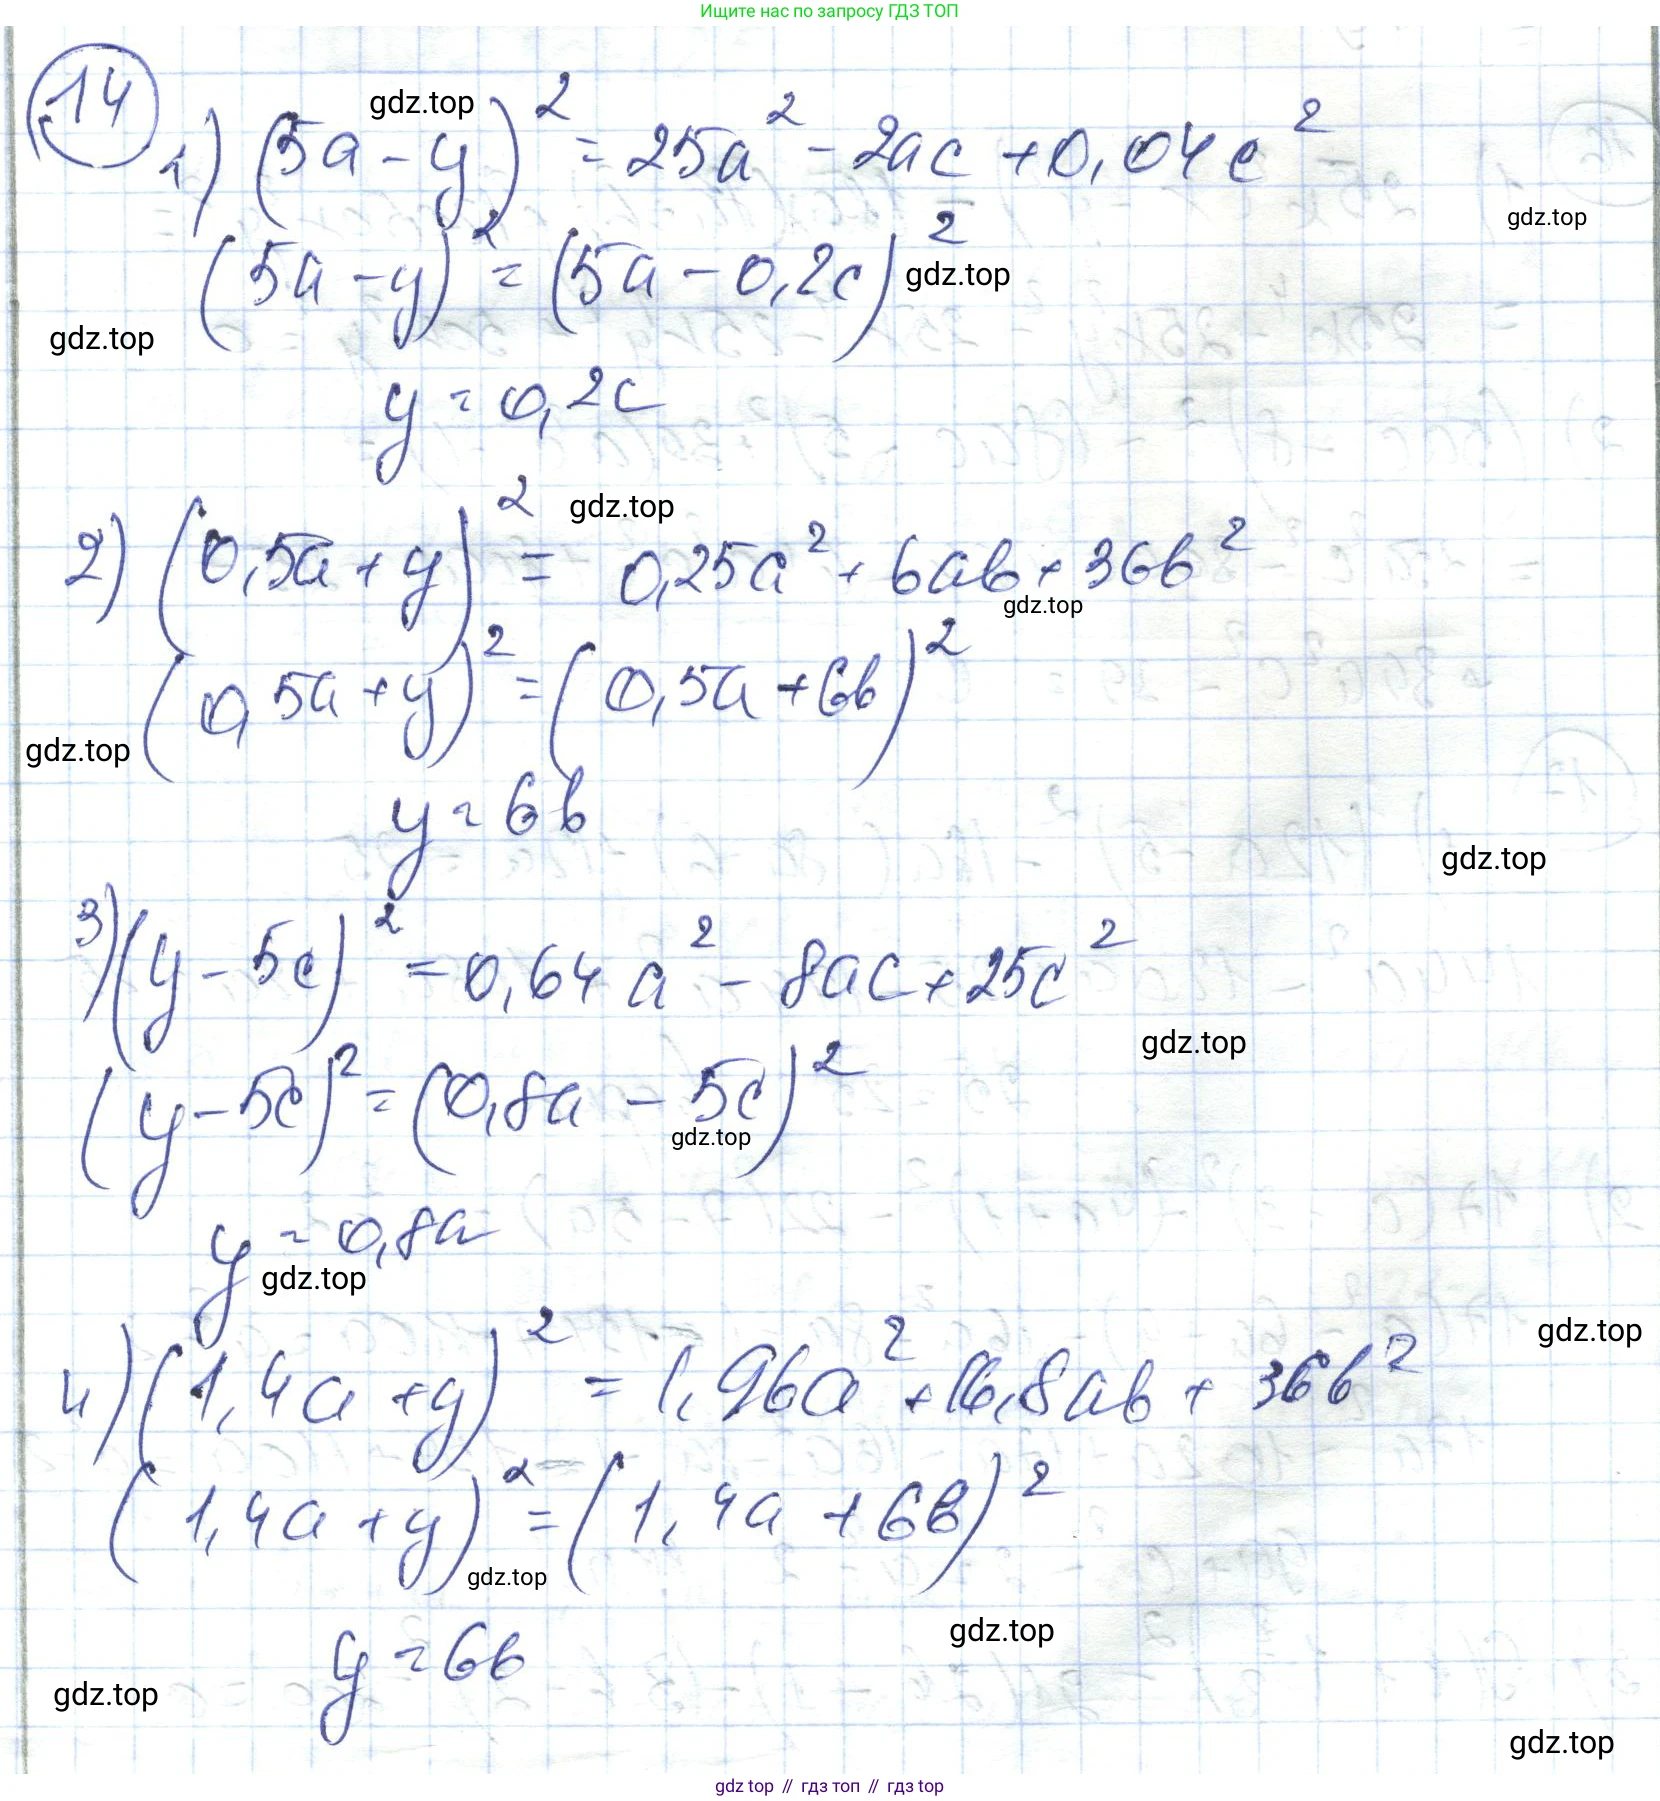 Ищите нас по запросу ГДЗ ТОП
14
gdz.top
1) (5a - y)² = 25a² - 2ac + 0,04c²
gdz.top
(5a - y)² = (5a - 0,2c)²
gdz.top
gdz.top
y = 0,2c
gdz.top
2) (0,5a + y)² = 0,25a² + 6ab + 36b²
gdz.top
(0,5a + y)² = (0,5a + 6b)²
gdz.top
y = 6b
gdz.top
3) (y - 5c)² = 0,64a² - 8ac + 25c²
gdz.top
(y - 5c)² = (0,8a - 5c)²
gdz.top
y = 0,8a
gdz.top
gdz.top
4) (1,4a + y)² = 1,96a² + 16,8ab + 36b²
(1,4a + y)² = (1,4a + 6b)²
gdz.top
gdz.top
y = 6b
gdz.top
gdz.top
gdz top // гдз топ // гдз top